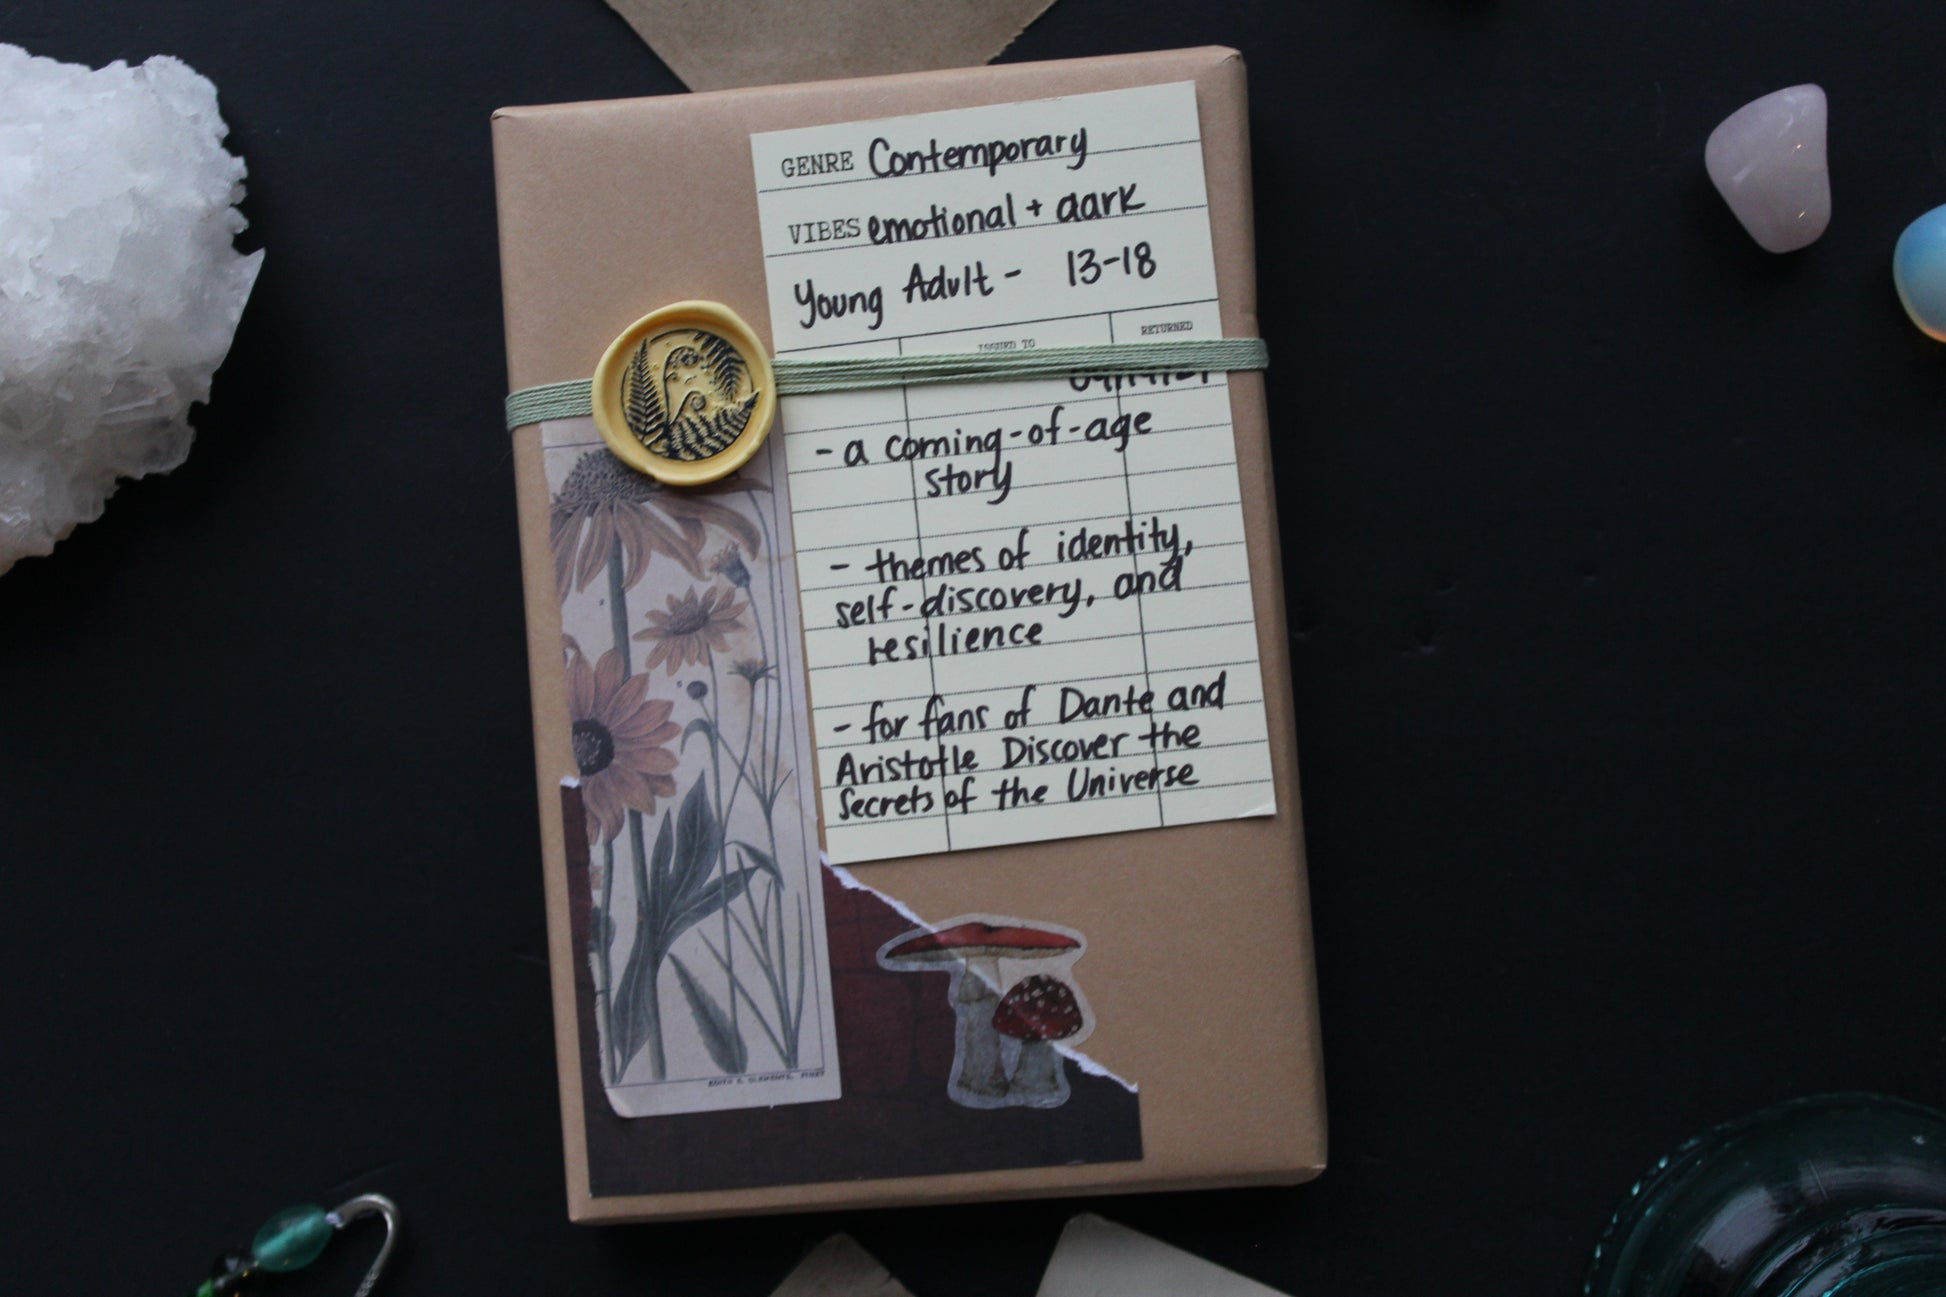 GENRE Contemporary
VIBES emotional + dark
Young Adult - 13-18
ISSUED TO RETURNED
- a coming-of-age
story
- themes of identity,
self-discovery, and
resilience
- for fans of Dante and
Aristotle Discover the
Secrets of the Universe
EDITH S. CLEMENTS, PINXT